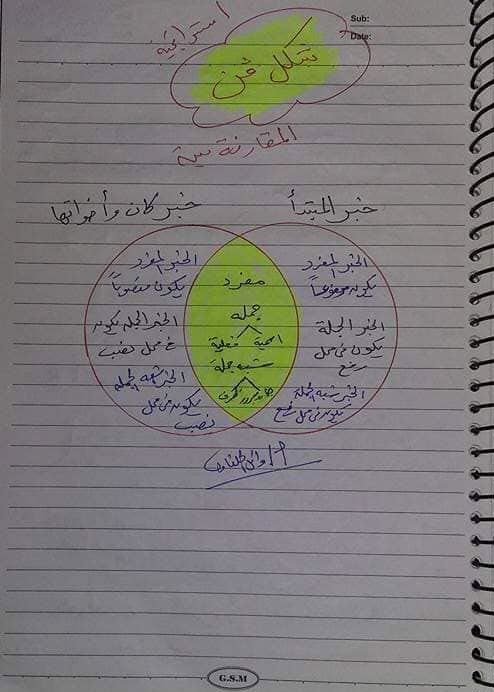 Sub:
Date:
استراتيجية
شكل ڤن
المقارنة بين
خبر المبتدأ
خبر كان وأخواتها
الخبر المفرد
يكون مرفوعاً
الخبر الجملة
يكون في محل
رفع
الخبر شبه الجملة
يكون في محل رفع
مفرد
جملة
اسمية فعلية
شبه جملة
الخبر المفرد
يكون منصوباً
الخبر الجملة يكون
في محل نصب
الخبر شبه الجملة
يكون في محل
نصب
G.S.M